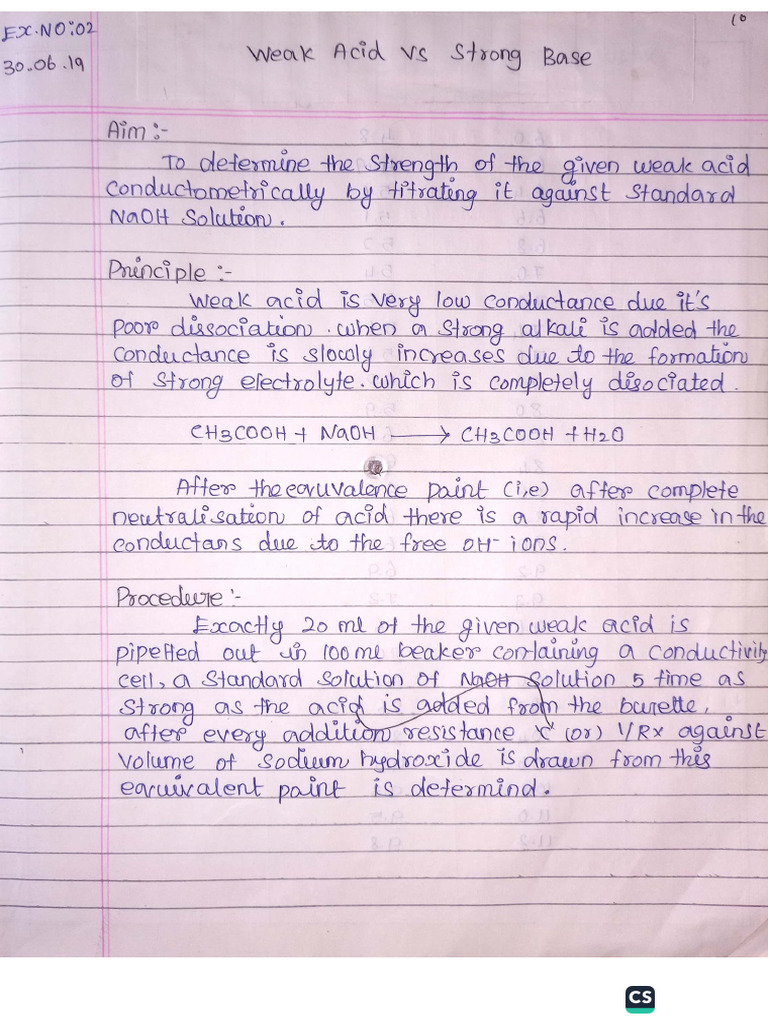 EX.NO:02
10
30.06.19
Weak Acid vs Strong Base
Aim:-
To determine the Strength of the given weak acid
conductometrically by titrating it against Standard
NaOH Solution.
Principle:-
Weak acid is very low conductance due it's
poor dissociation. when a strong alkali is added the
conductance is slowly increases due to the formation
of strong electrolyte. which is completely disociated.
CH3COOH + NaOH ⟶ CH3COOH + H2O
After the equvalence paint (i,e) after complete
neutralisation of acid there is a rapid increase in the
conductans due to the free OH- ions.
Procedure:-
Exactly 20 ml of the given weak acid is
pipetted out in 100 ml beaker containing a conductivity
cell, a Standard Solution of NaOH Solution 5 time as
strong as the acid is added from the burette,
after every addition resistance 'c' (or) 1/Rx against
volume of sodium hydroxide is drawn from this
equivalent paint is determind.
CS